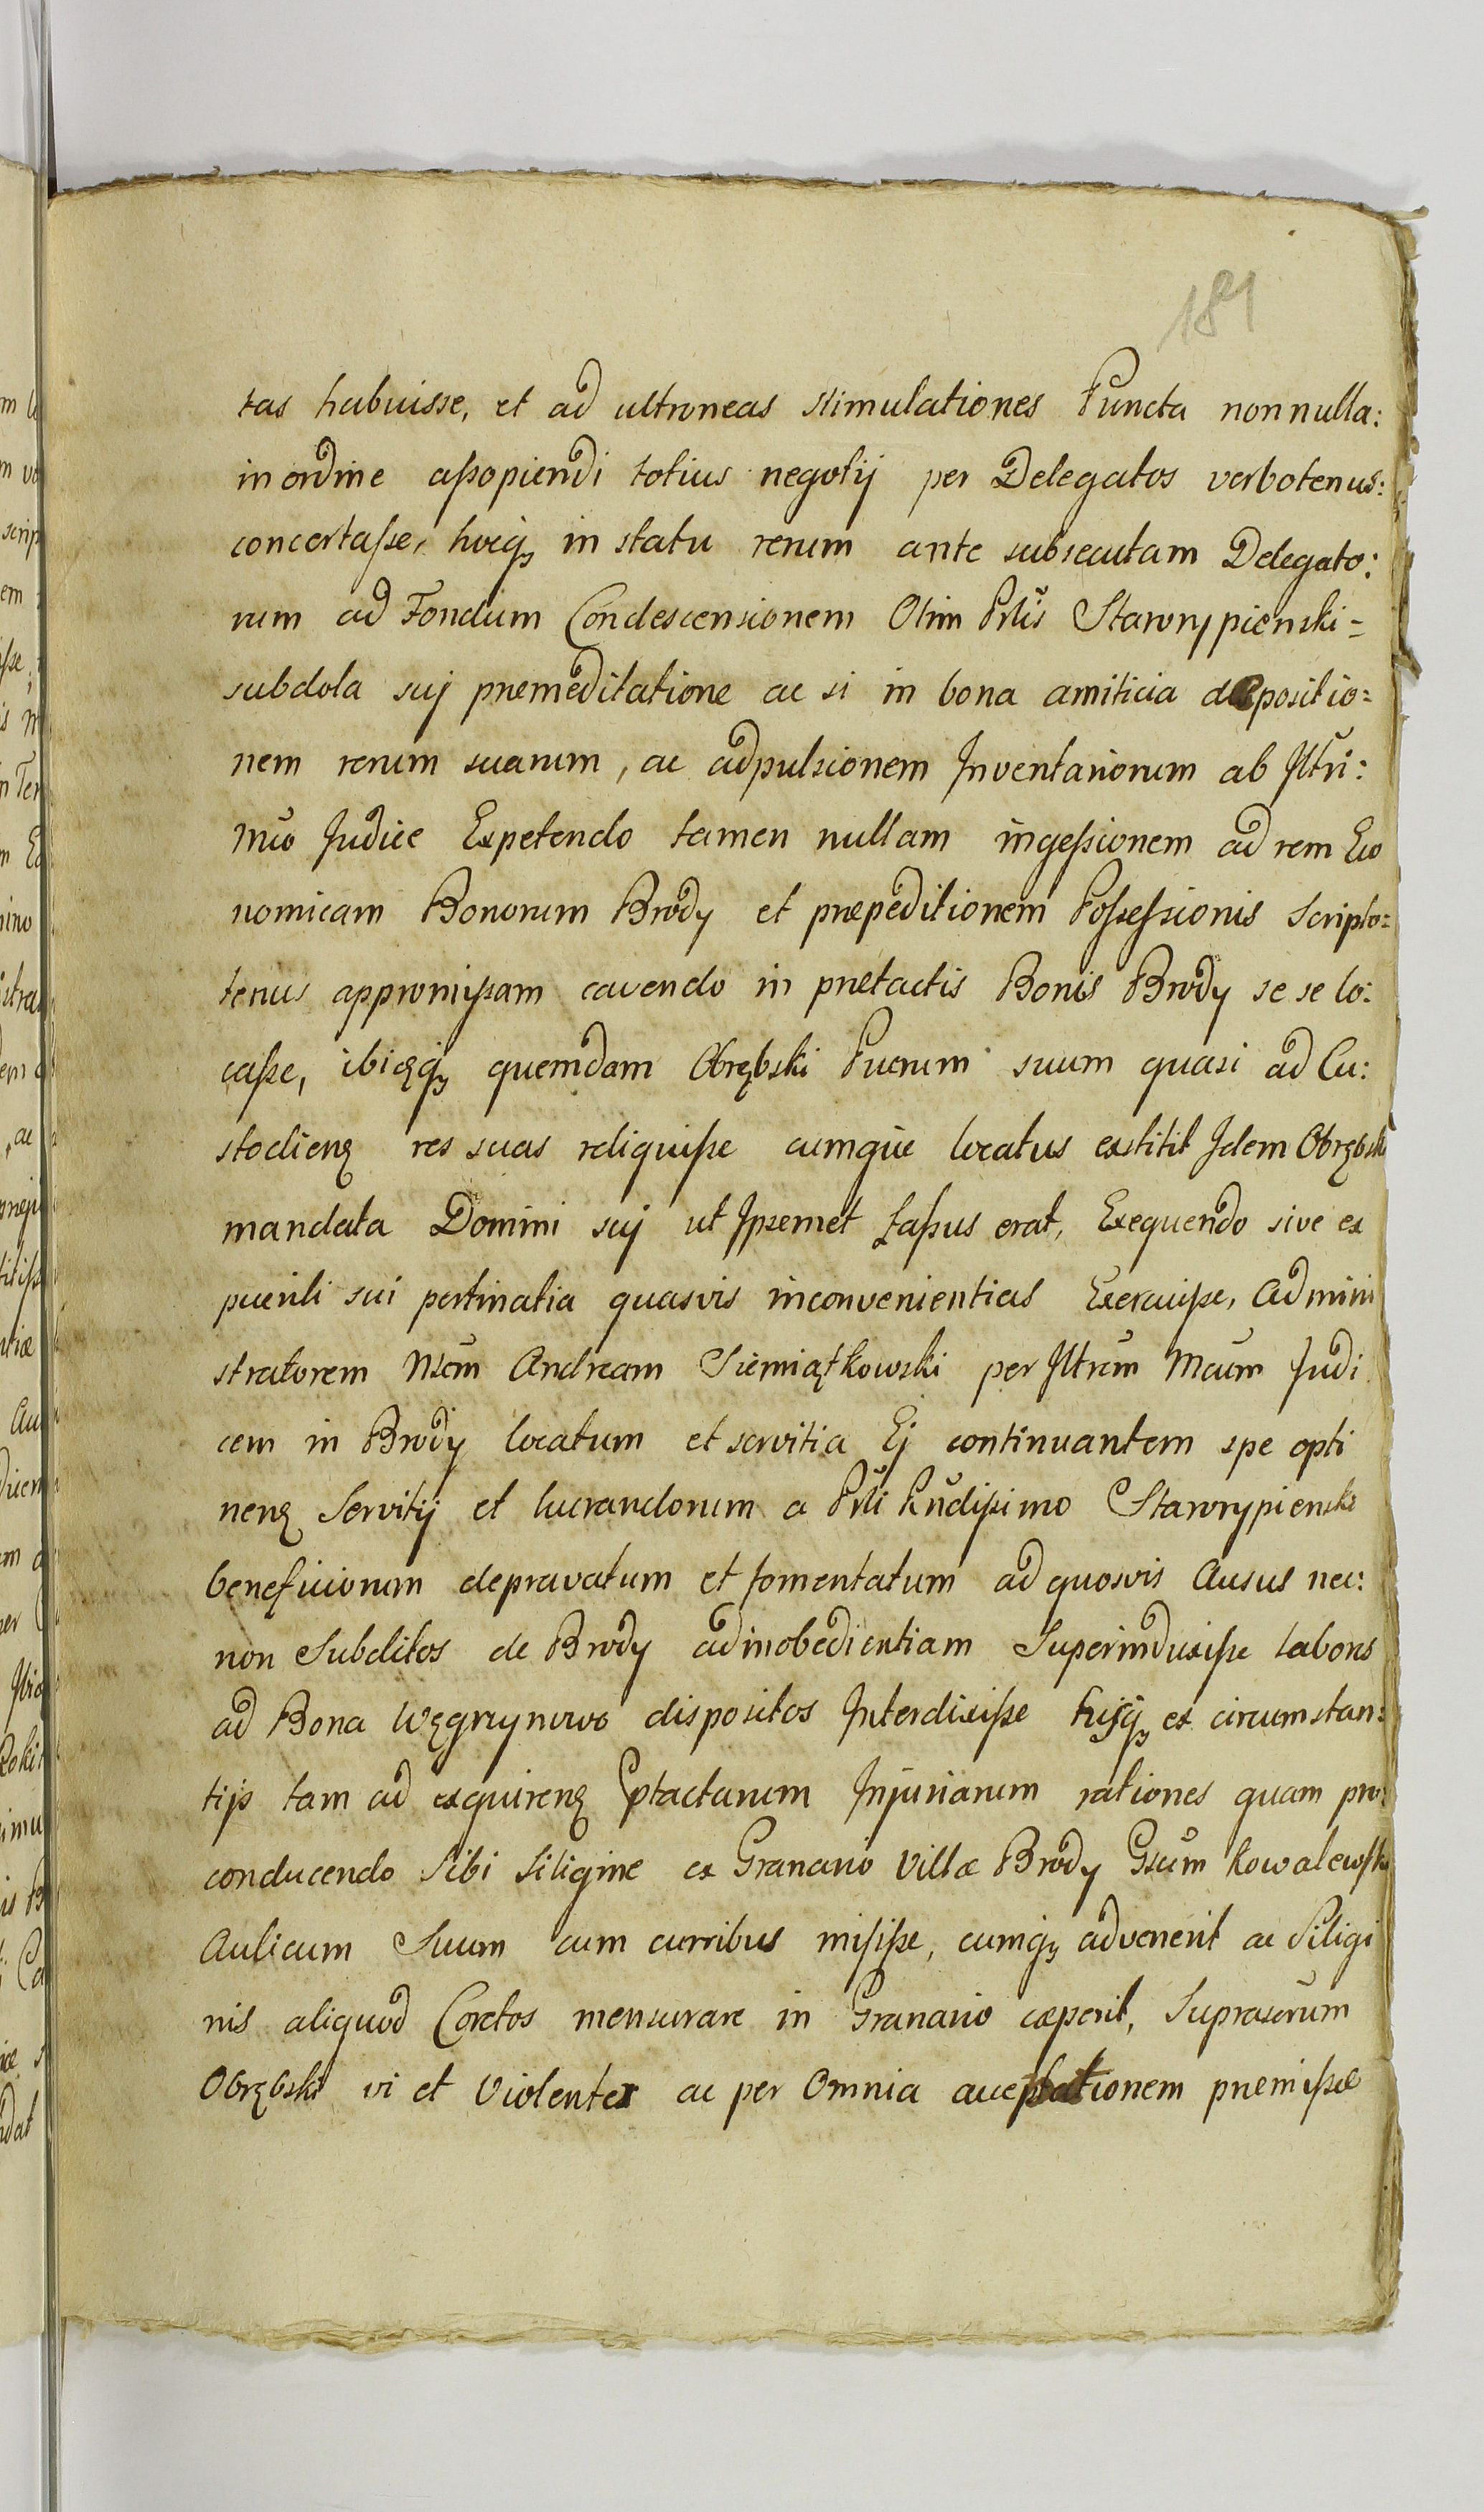 181
tas habuisse, et ad ultroneas stimulationes Puncta nonnulla:
in ordine aßopiendi totius negotij per Delegatos verbotenus:
concertaße, hocqꝫ in statu rerum ante subsecutam Delegato:
rum ad Fondum Condescensionem Olim Prlis Starorypienski=
subdola suj præmeditatione ac si in bona amiticia depositio=
nem rerum suarum, ac adpulsionem Inventariorum ab Jltri:
Mco Judice Expetendo tamen nullam ingeßionem ad rem Eco
nomicam Bonorum Brody et præpeditionem Poßeßionis scripto=
tenus appromißam cavendo in prætactis Bonis Brody se se lo:
caße, ibiqꝫ quemdam Obrębski Puerum suum quasi ad Cu:
stodienꝫ res suas reliquiße cumque locatus extitit Idem Obrębski
mandata Domini suj ut Ipsemet faßus erat, Exequendo sive ex
puerili sui pertinatia quasvis inconvenientias Exercuiße, Admini
stratorem Nsem Andream Siemiątkowski per Jltrem Mcum Judi
cem in Brody locatum et servitia Ej continuantem spe opti
nenꝫ Servitij et lucrandorum a Prli Rndißimo Starorypienski
beneficiorum depravatum et fomentatum ad quosvis Ausus nec:
non Subditos de Brody ad inobedientiam Superinduxiße labores
ad Bona Węgrzynowo dispositos Interdixiße hisqꝫ ex circumstan:
tijs tam ad exquirenꝫ ptactarum Injuriarum rationes quam pro
conducendo Sibi Siligine ex Granario Villæ Brody Gsum Kowalewski
Aulicum Suum cum curribus misiße, cumqꝫ advenerit ac Siligi
nis aliquod Coretos mensurare in Granario cæperit, Suprascrum
Obrębski vi et Violenter ac per Omnia acceptationem præmißæ